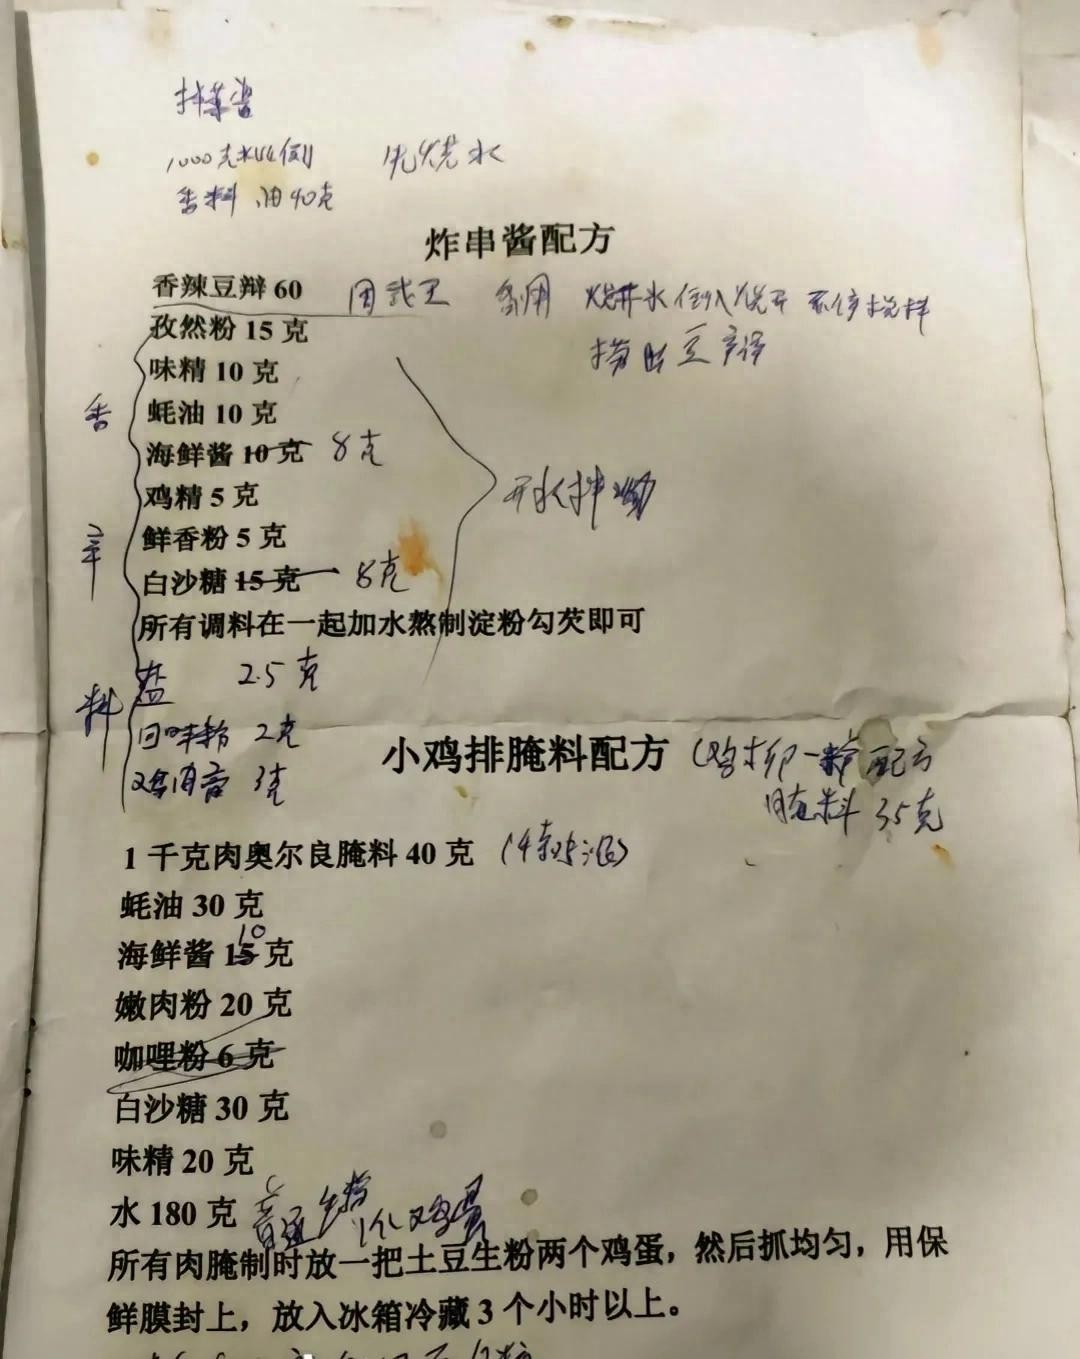 拌菜酱
1000克水比例 先烧水
香料 油40克
炸串酱配方
香辣豆辩 60 备用 烧开水倒入烧开 不停搅拌
捞出豆辩
孜然粉 15 克
味精 10 克
香辛料
蚝油 10 克
海鲜酱 10 克 8克
鸡精 5 克 开水拌
鲜香粉 5 克
白沙糖 15 克 8克
所有调料在一起加水熬制淀粉勾芡即可
盐 2.5 克
回味粉 2克
鸡肉膏 3克
小鸡排腌料配方 (鸡排一 配方
腌料 35克
1 千克肉奥尔良腌料 40 克
蚝油 30 克
海鲜酱 15 10 克
嫩肉粉 20 克
咖哩粉 6 克
白沙糖 30 克
味精 20 克
水 180 克 普通 1个鸡蛋
所有肉腌制时放一把土豆生粉两个鸡蛋，然后抓均匀，用保
鲜膜封上，放入冰箱冷藏 3 个小时以上。